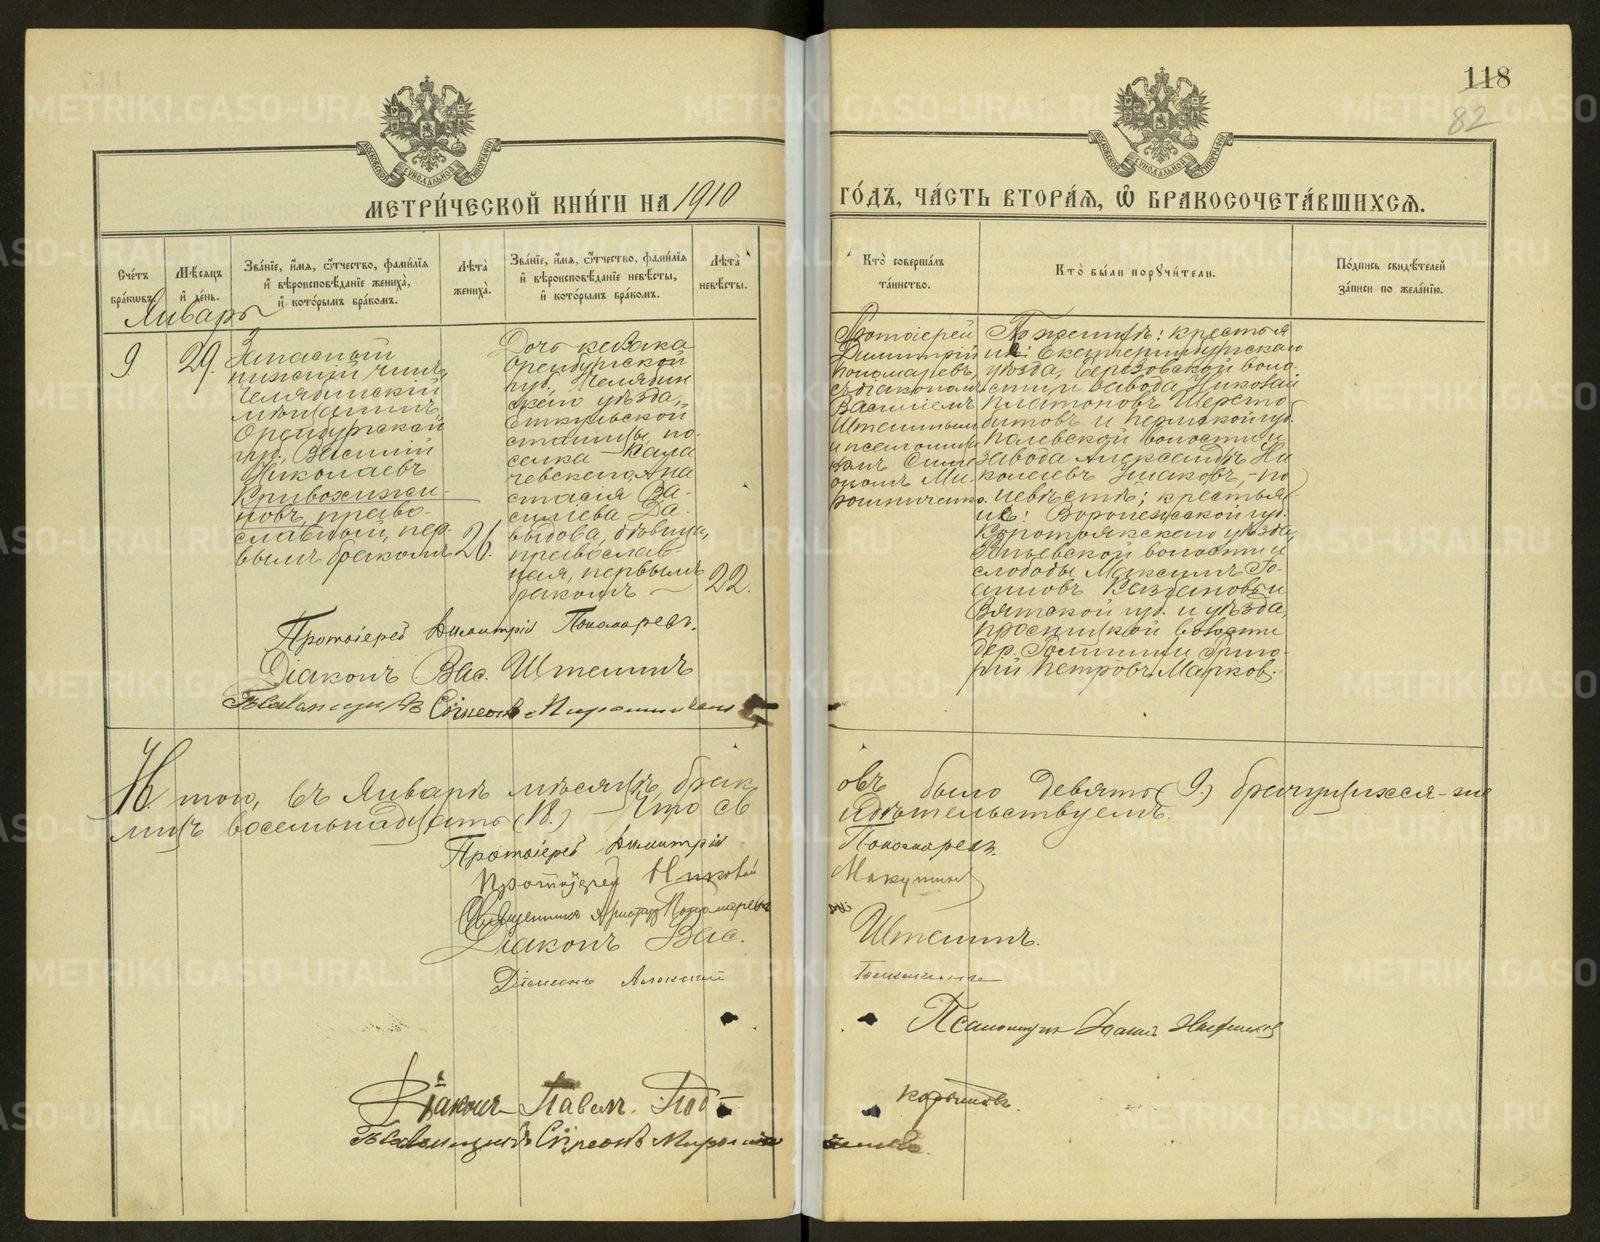 118
82
МЕТРИ́ЧЕСКОЙ КНИ́ГИ НА 1910 ГО́ДЪ, ЧА́СТЬ ВТОРА́Я, Ѽ БРАКОСОЧЕТА́ВШИХСЯ.
Сче́тъ бра́кωвъ.
Мѣ́сяцъ и҆ де́нь.
Зва́нїе, и҆́мя, ѻ҆́тчество, фами́лїя и҆ вѣроисповѣ́данїе жениха̀, и҆ кото́рымъ бра́комъ.
Лѣ́та̀ жениха̀.
Зва́нїе, и҆́мя, ѻ҆́тчество, фами́лїя и҆ вѣроисповѣ́данїе невѣ́сты, и҆ кото́рымъ бра́комъ.
Лѣ́та̀ невѣ́сты.
Кто̀ соверша́лъ та́инство.
Кто̀ бы́ли порꙋчи́тели.
По́дпись свидѣ́телей за́писи по жела́нїю.
Январь
9
29.
Запасной
нижній чинъ,
Челябинскій
мѣщанинъ,
Оренбургской
губ., Василій
Николаевъ
Кривохижи-
новъ, право-
славный, пер-
вымъ бракомъ
26.
Дочь казака
Оренбургской
губ. Челябин
скаго уѣзда,
Еткульской
станицы, по-
селка Кала
чевскаго, Ана
стасія Ва-
сильева Да-
выдова, дѣвица,
православ-
ная, первымъ
бракомъ
22.
Протоіерей
Димитрій
Пономаревъ
съ діакономъ
Василіемъ
Штейнымъ
и псаломщи
комъ Симе
ономъ Ми
рошниченко.
По женихѣ: крестья
не: Екатеринбургскаго
уѣзда, Березовской воло-
сти и завода Николай
Платоновъ Шерсто-
битовъ и Пермской губ.
Полевской волости и
завода Александръ Ни
колаевъ Ушаковъ, - по
невѣстѣ: крестья-
не: Воронежской губ.
Коротоякскаго уѣзда,
волости и
слободы Максимъ
и
Вятской губ. и уѣзда,
волости
дер. Григо-
рій Петровъ Марков.
Протоіерей Димитрій Пономаревъ.
Діаконъ Вас. Штейнъ
Псаломщикъ Симеонъ Мирошниченко
Итого, въ Январѣ мѣсяцѣ, браковъ было девять (9.) брачущихся-же
лицъ восемьнадцать (18.) - Что свидѣтельствуемъ.
Протоіерей Димитрій Пономаревъ.
Протоіерей Николай
Священникъ Пономаревъ
Діаконъ Вас. Штейнъ.
Діаконъ Алексій
Псаломщикъ
Діаконъ Павелъ Подкорытовъ.
Псаломщикъ Симеонъ Мирошниченко.
METRIKI.GASO-URAL.RU